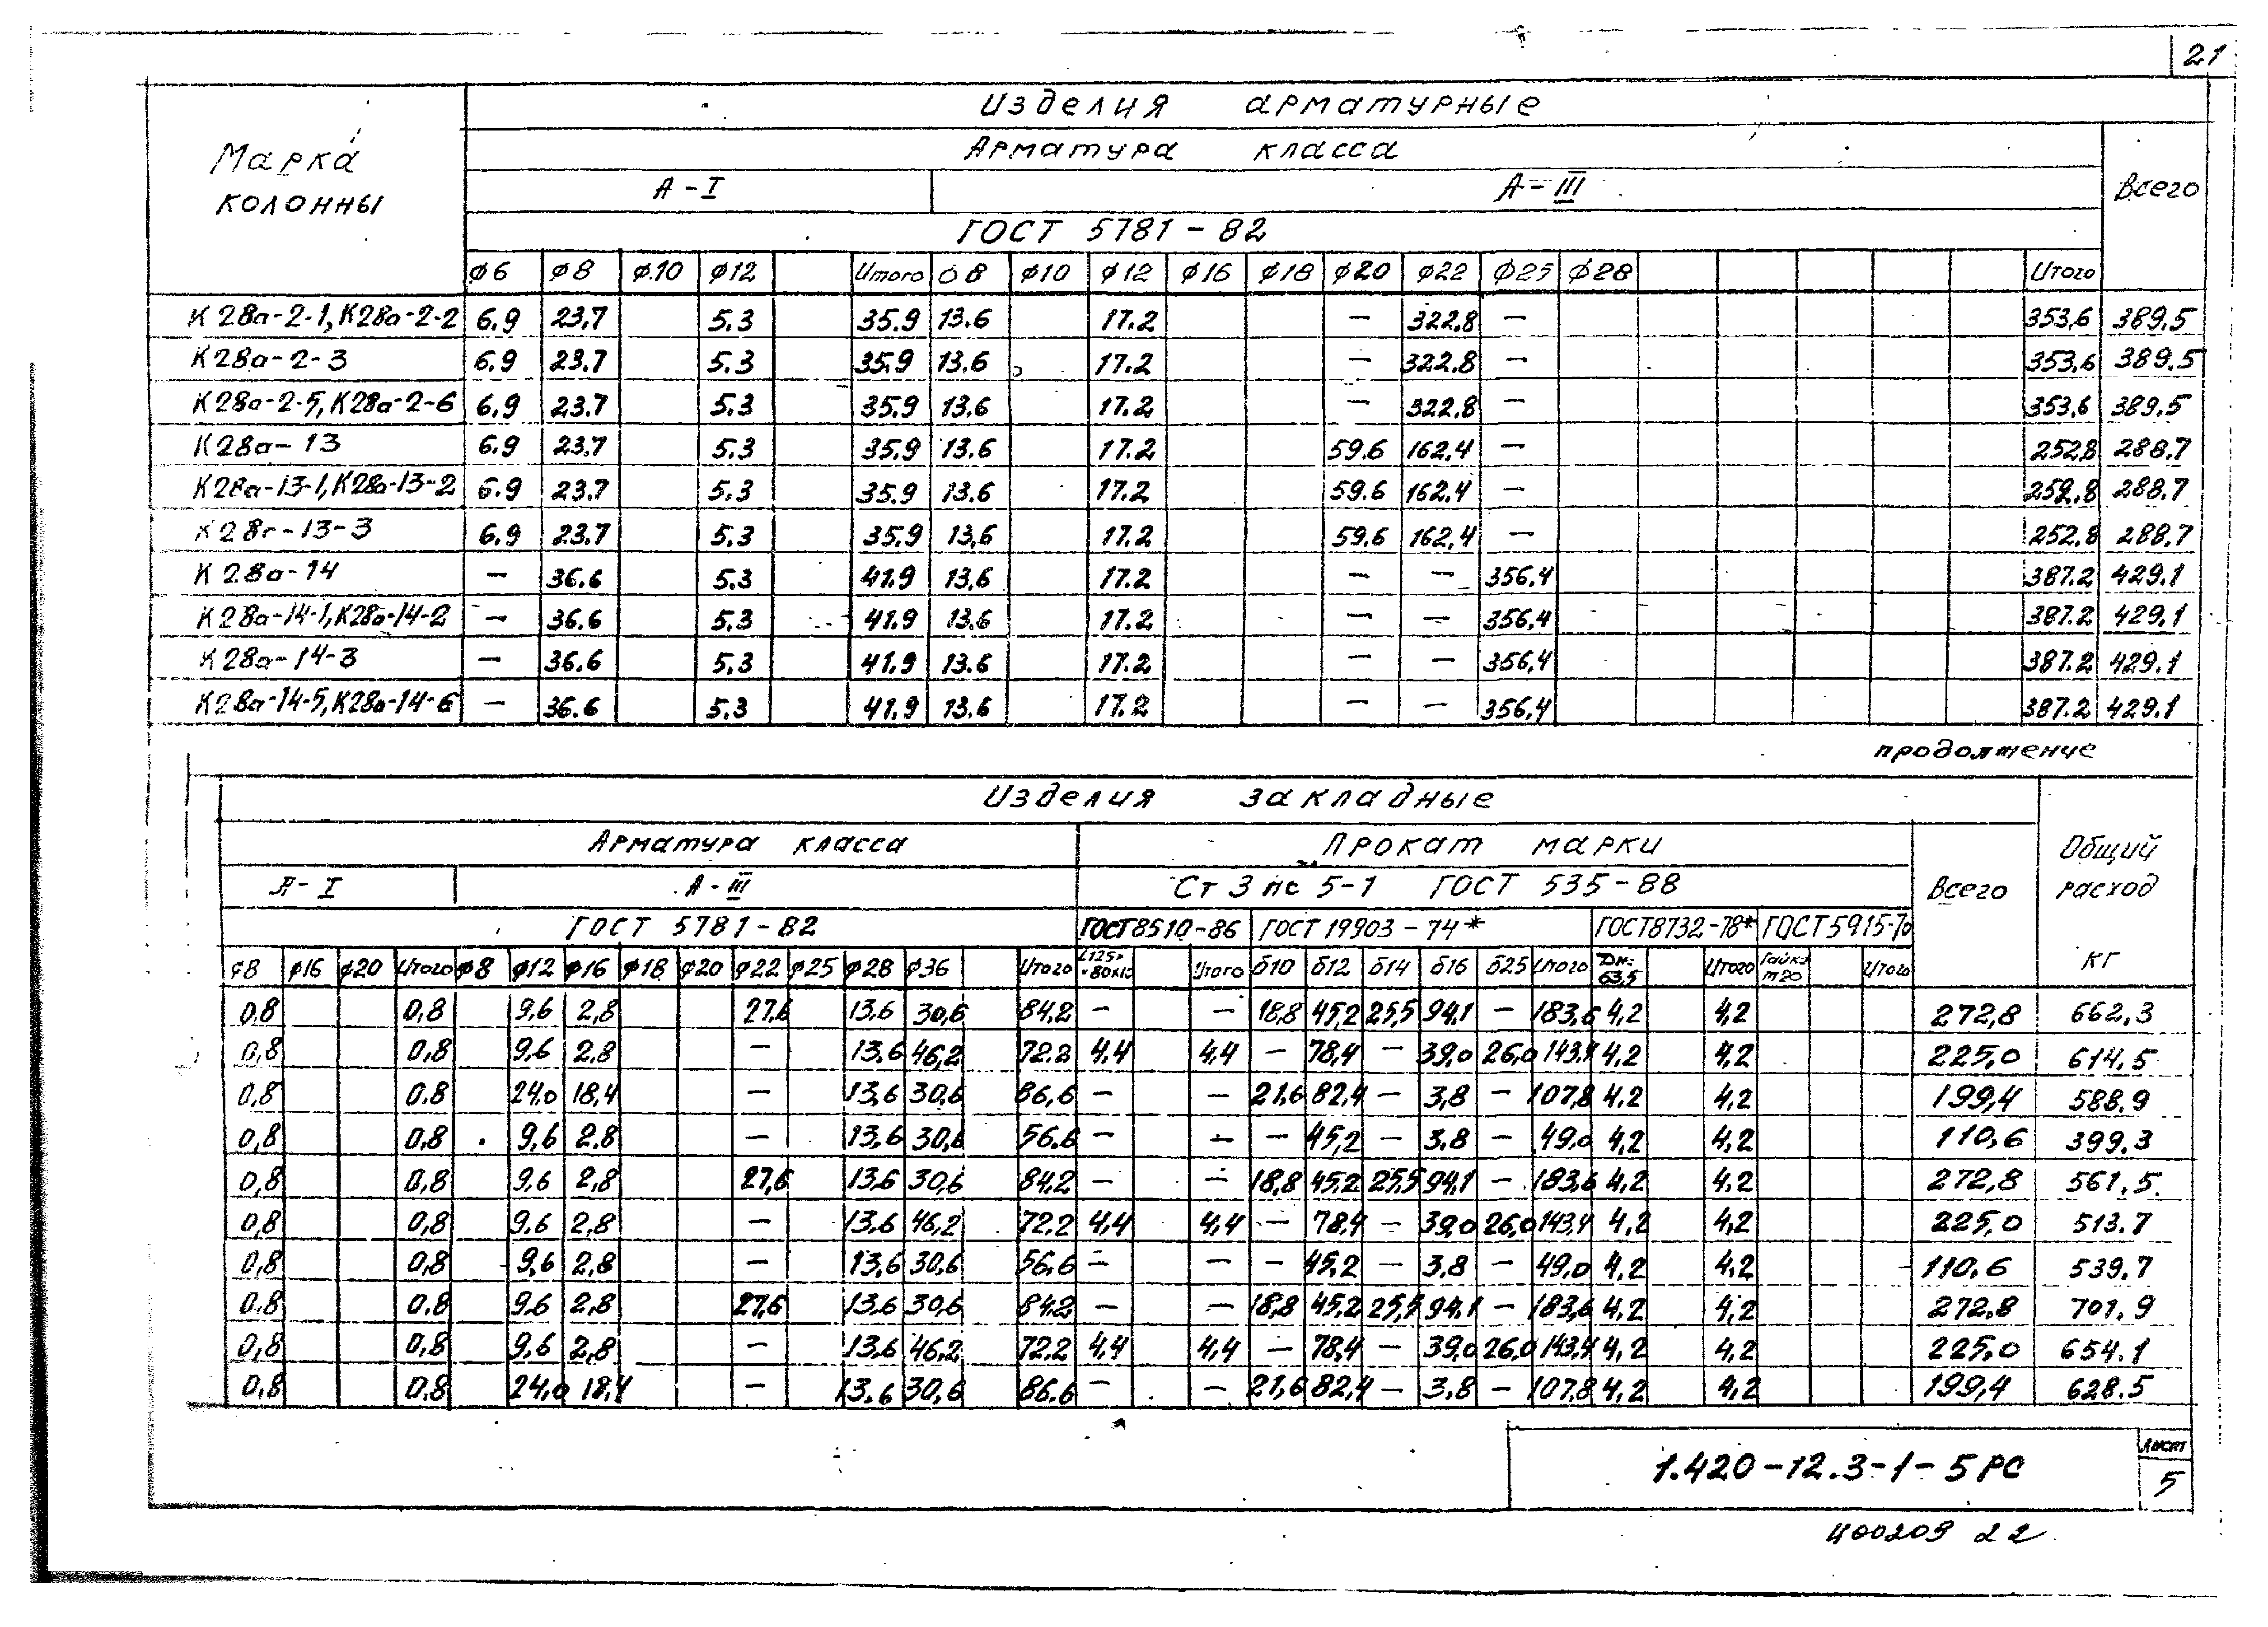 21
Изделия арматурные
Марка колонны
Арматура класса
Всего
А-I А-III
ГОСТ 5781-82
ф6 ф8 ф.10 ф12 Итого ф8 ф10 ф12 ф16 ф18 ф20 ф22 ф25 ф28 Итого
К28а-2-1,К28а-2-2 6.9 23,7 5.3 35.9 13.6 17.2 — 322.8 — 353,6 389,5
К28а-2-3 6.9 23.7 5.3 35.9 13.6 17.2 — 322.8 — 353,6 389,5
К28а-2-5,К28а-2-6 6.9 23.7 5.3 35.9 13.6 17.2 — 322.8 — 353,6 389,5
К28а-13 6.9 23,7 5.3 35.9 13.6 17.2 59.6 162.4 — 252,8 288.7
К28а-13-1,К28а-13-2 6.9 23.7 5.3 35.9 13.6 17.2 59.6 162.4 — 252.8 288.7
К28а-13-3 6.9 23.7 5.3 35.9 13,6 17.2 59.6 162,4 — 252,8 288,7
К28а-14 — 36.6 5.3 41.9 13,6 17.2 — — 356,4 387.2 429.1
К28а-14-1,К28а-14-2 — 36.6 5.3 41.9 13.6 17.2 — — 356,4 387.2 429.1
К28а-14-3 — 36.6 5,3 41.9 13.6 17.2 — — 356,4 387.2 429.1
К28а-14-5,К28а-14-6 — 36.6 5.3 41.9 13.6 17.2 — — 356,4 387.2 429.1
продолжение
Изделия закладные
Арматура класса Прокат марки Всего Общий расход кг
А-I А-III Ст 3 пс 5-1 ГОСТ 535-88
ГОСТ 5781-82 ГОСТ8510-86 ГОСТ 19903-74* ГОСТ8732-78* ГОСТ5915-70
ф8 ф16 ф20 Итого ф8 ф12 ф16 ф18 ф20 ф22 ф25 ф28 ф36 Итого L125× ×80×10 Итого δ10 δ12 δ14 δ16 δ25 Итого Дн= 63,5 Итого Гайка м20 Итого
0,8 0,8 9,6 2,8 27,6 13,6 30,6 84,2 — — 18,8 45,2 25,5 94,1 — 183,6 4,2 4,2 272,8 662,3
0,8 0,8 9,6 2,8 — 13,6 46,2 72.2 4,4 4,4 — 78,4 — 39,0 26,0 143,4 4,2 4,2 225,0 614,5
0,8 0.8 24,0 18,4 — 13,6 30,6 86,6 — — 21,6 82,4 — 3,8 — 107,8 4.2 4.2 199,4 588.9
0,8 0,8 9,6 2.8 — 13,6 30,6 56.6 — — — 45,2 — 3,8 — 49,0 4,2 4.2 110,6 399.3
0,8 0,8 9,6 2,8 27,6 13,6 30,6 84,2 — — 18,8 45,2 25,5 94,1 — 183,6 4,2 4,2 272,8 561,5
0,8 0,8 9,6 2,8 — 13,6 46,2 72,2 4,4 4,4 — 78,4 — 39,0 26,0 143,4 4,2 4,2 225,0 513.7
0,8 0,8 9,6 2,8 — 13,6 30,6 56,6 — — — 45,2 — 3,8 — 49,0 4,2 4,2 110,6 539,7
0,8 0,8 9,6 2,8 27,6 13,6 30,6 84,2 — — 18,8 45,2 25,5 94,1 — 183,6 4,2 4,2 272,8 701,9
0,8 0,8 9,6 2,8 — 13,6 46,2 72,2 4,4 4,4 — 78,4 — 39,0 26,0 143,4 4,2 4,2 225,0 654.1
0,8 0,8 24,0 18,4 — 13,6 30,6 86.6 — — 21,6 82,4 — 3,8 — 107,8 4,2 4,2 199,4 628.5
1.420-12.3-1-5РС
Лист
5
Ц00209 22